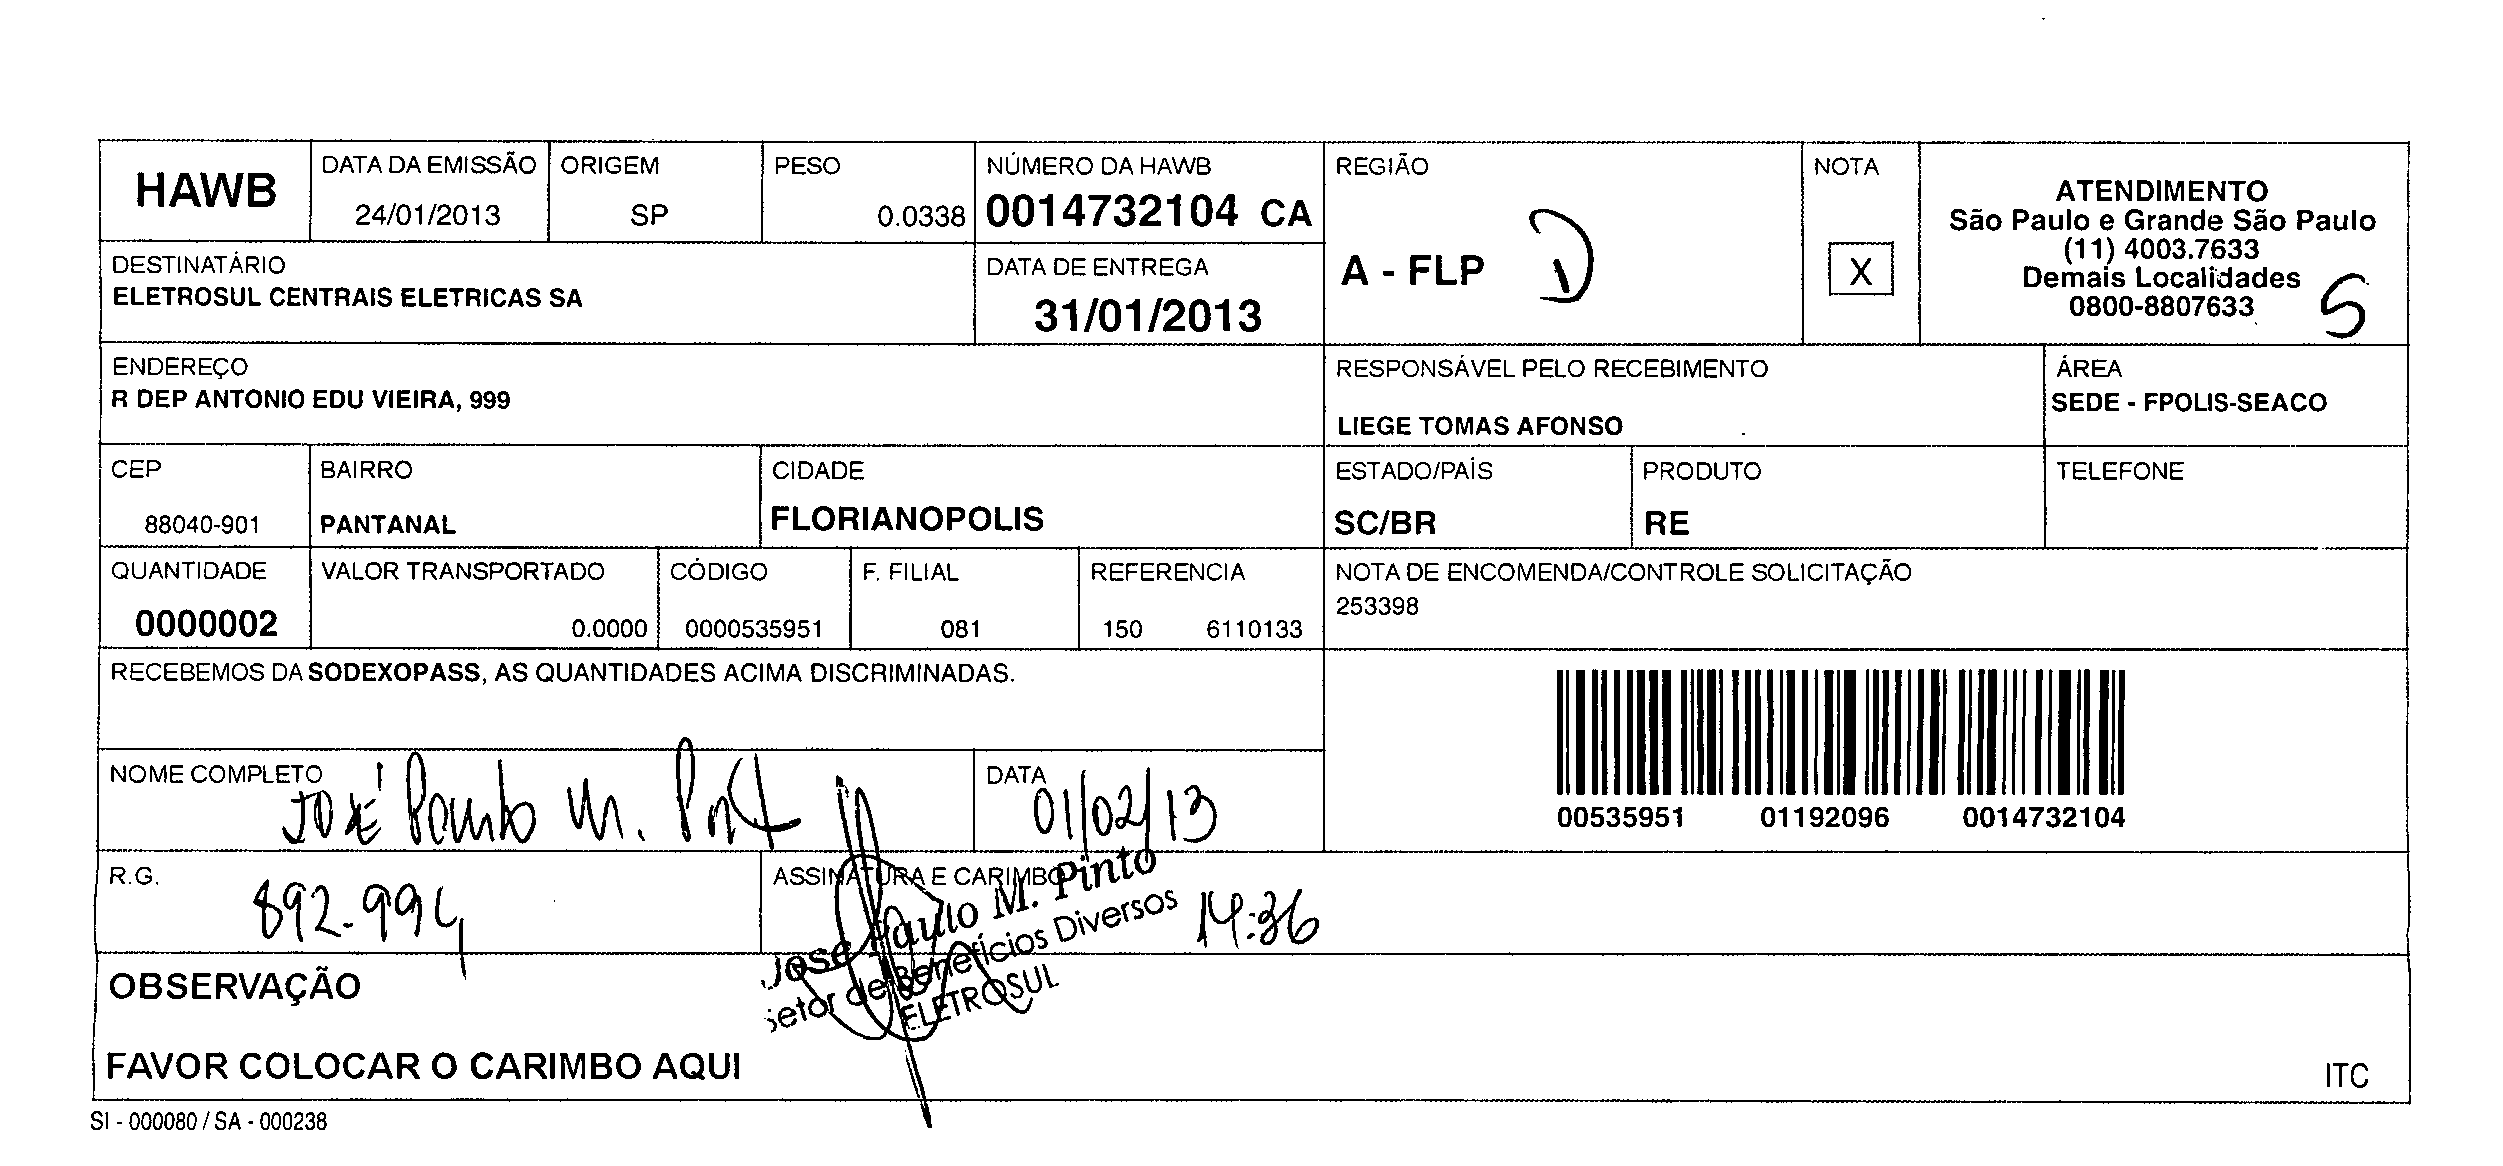 HAWB
DATA DA EMISSÃO
24/01/2013
ORIGEM
SP
PESO
0.0338
NÚMERO DA HAWB
0014732104 CA
REGIÃO
A - FLP D
NOTA
X
ATENDIMENTO
São Paulo e Grande São Paulo
(11) 4003.7633
Demais Localidades
0800-8807633
5
DESTINATÁRIO
ELETROSUL CENTRAIS ELETRICAS SA
DATA DE ENTREGA
31/01/2013
ENDEREÇO
R DEP ANTONIO EDU VIEIRA, 999
RESPONSÁVEL PELO RECEBIMENTO
LIEGE TOMAS AFONSO
ÁREA
SEDE - FPOLIS-SEACO
CEP
88040-901
BAIRRO
PANTANAL
CIDADE
FLORIANOPOLIS
ESTADO/PAÍS
SC/BR
PRODUTO
RE
TELEFONE
QUANTIDADE
0000002
VALOR TRANSPORTADO
0.0000
CÓDIGO
0000535951
F. FILIAL
081
REFERENCIA
150 6110133
NOTA DE ENCOMENDA/CONTROLE SOLICITAÇÃO
253398
RECEBEMOS DA SODEXOPASS, AS QUANTIDADES ACIMA DISCRIMINADAS.
00535951 01192096 0014732104
NOME COMPLETO
José Paulo M. Pinto
DATA
01/02/13
R.G.
892.994
ASSINATURA E CARIMBO
José Paulo M. Pinto
Setor de Benefícios Diversos
ELETROSUL
14:36
OBSERVAÇÃO
FAVOR COLOCAR O CARIMBO AQUI
ITC
SI - 000080 / SA - 000238